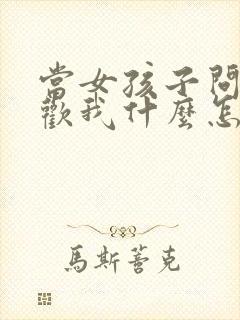 當女孩子問
歡我什麼怎
馬斯薈克